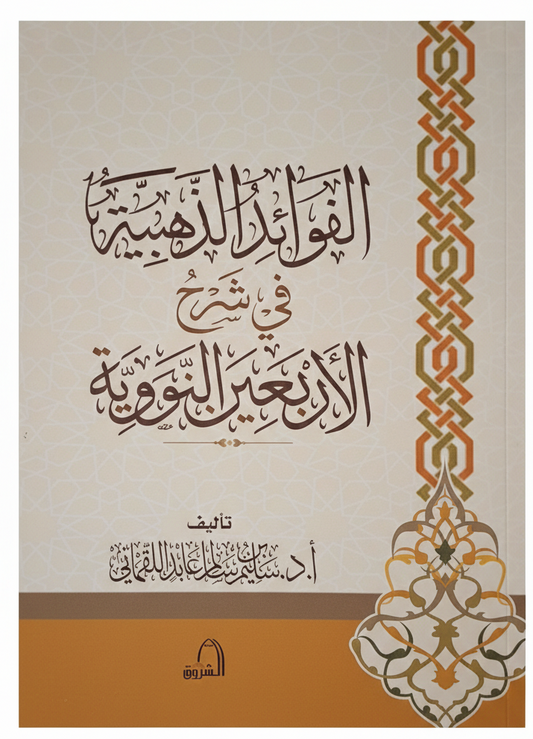 الفَوَائِدُ الذَّهَبِيَّةُ
فِي شَرْحِ
الأَرْبَعِينَ النَّوَوِيَّةِ
تأليف
أ.د. سالم عابد اللقماني
الشروق